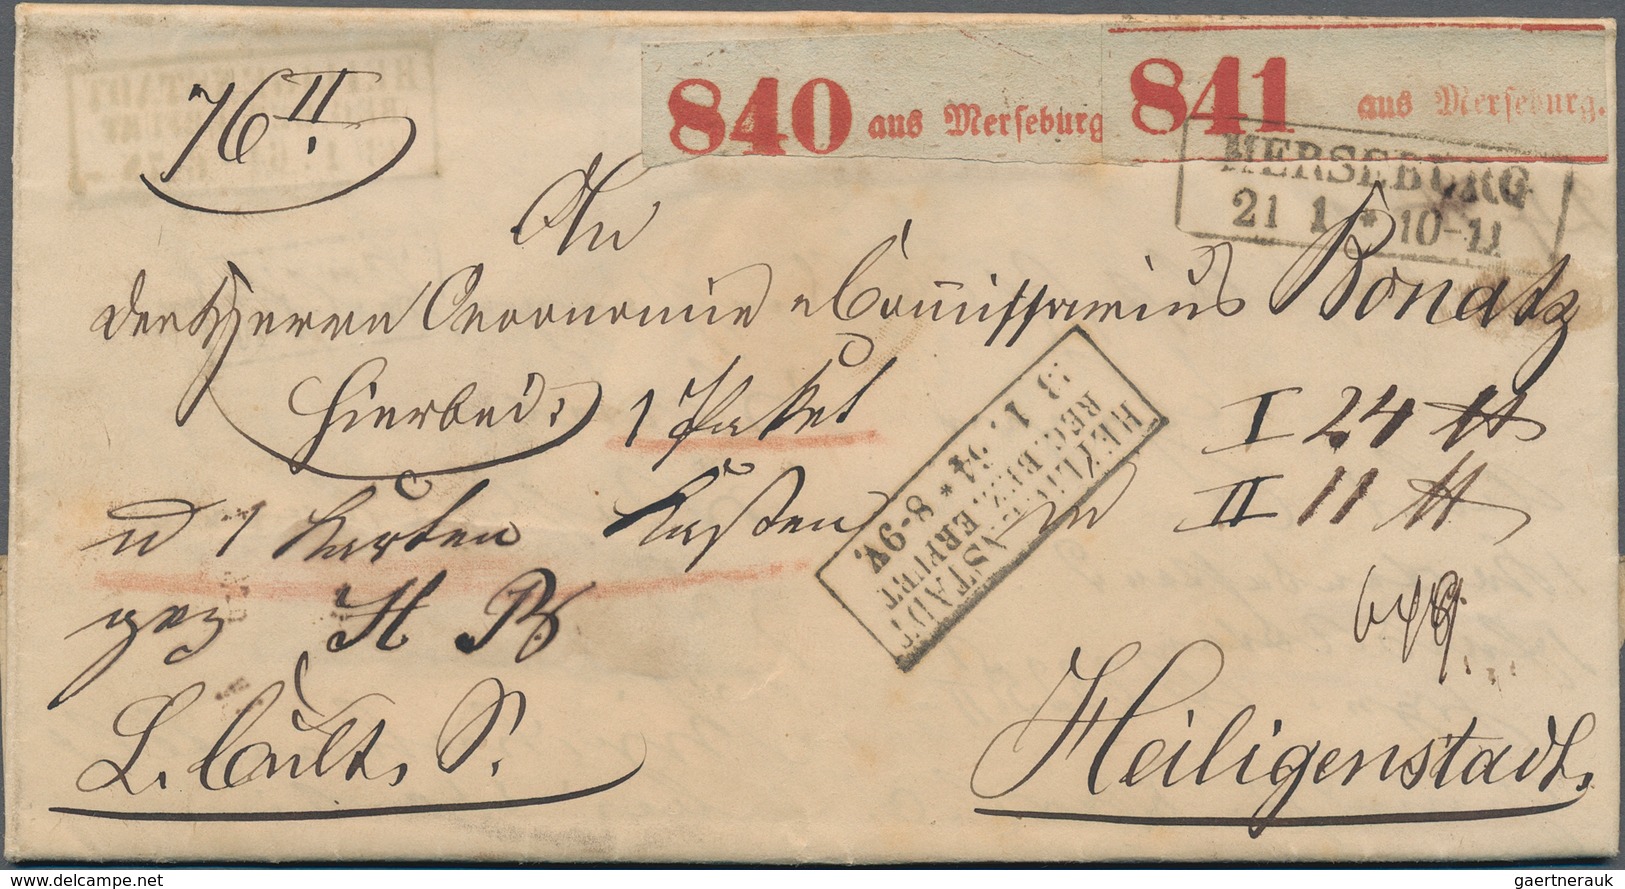 76 II.
840 aus Merseburg
841 aus Merseburg.
MERSEBURG
21 1 * 10-11
An
den Herrn Oeconomie Commissarius Bonatz
hierbei: 1 Paket
I 24 ℔
u 1 Karten Kasten
II 11 ℔
gez H B
HEILIGENSTADT
REG. BEZ. ERFURT
* 8-9V.
L. Cult. S.
Heiligenstadt.
delcampe.net
gaertnerauk